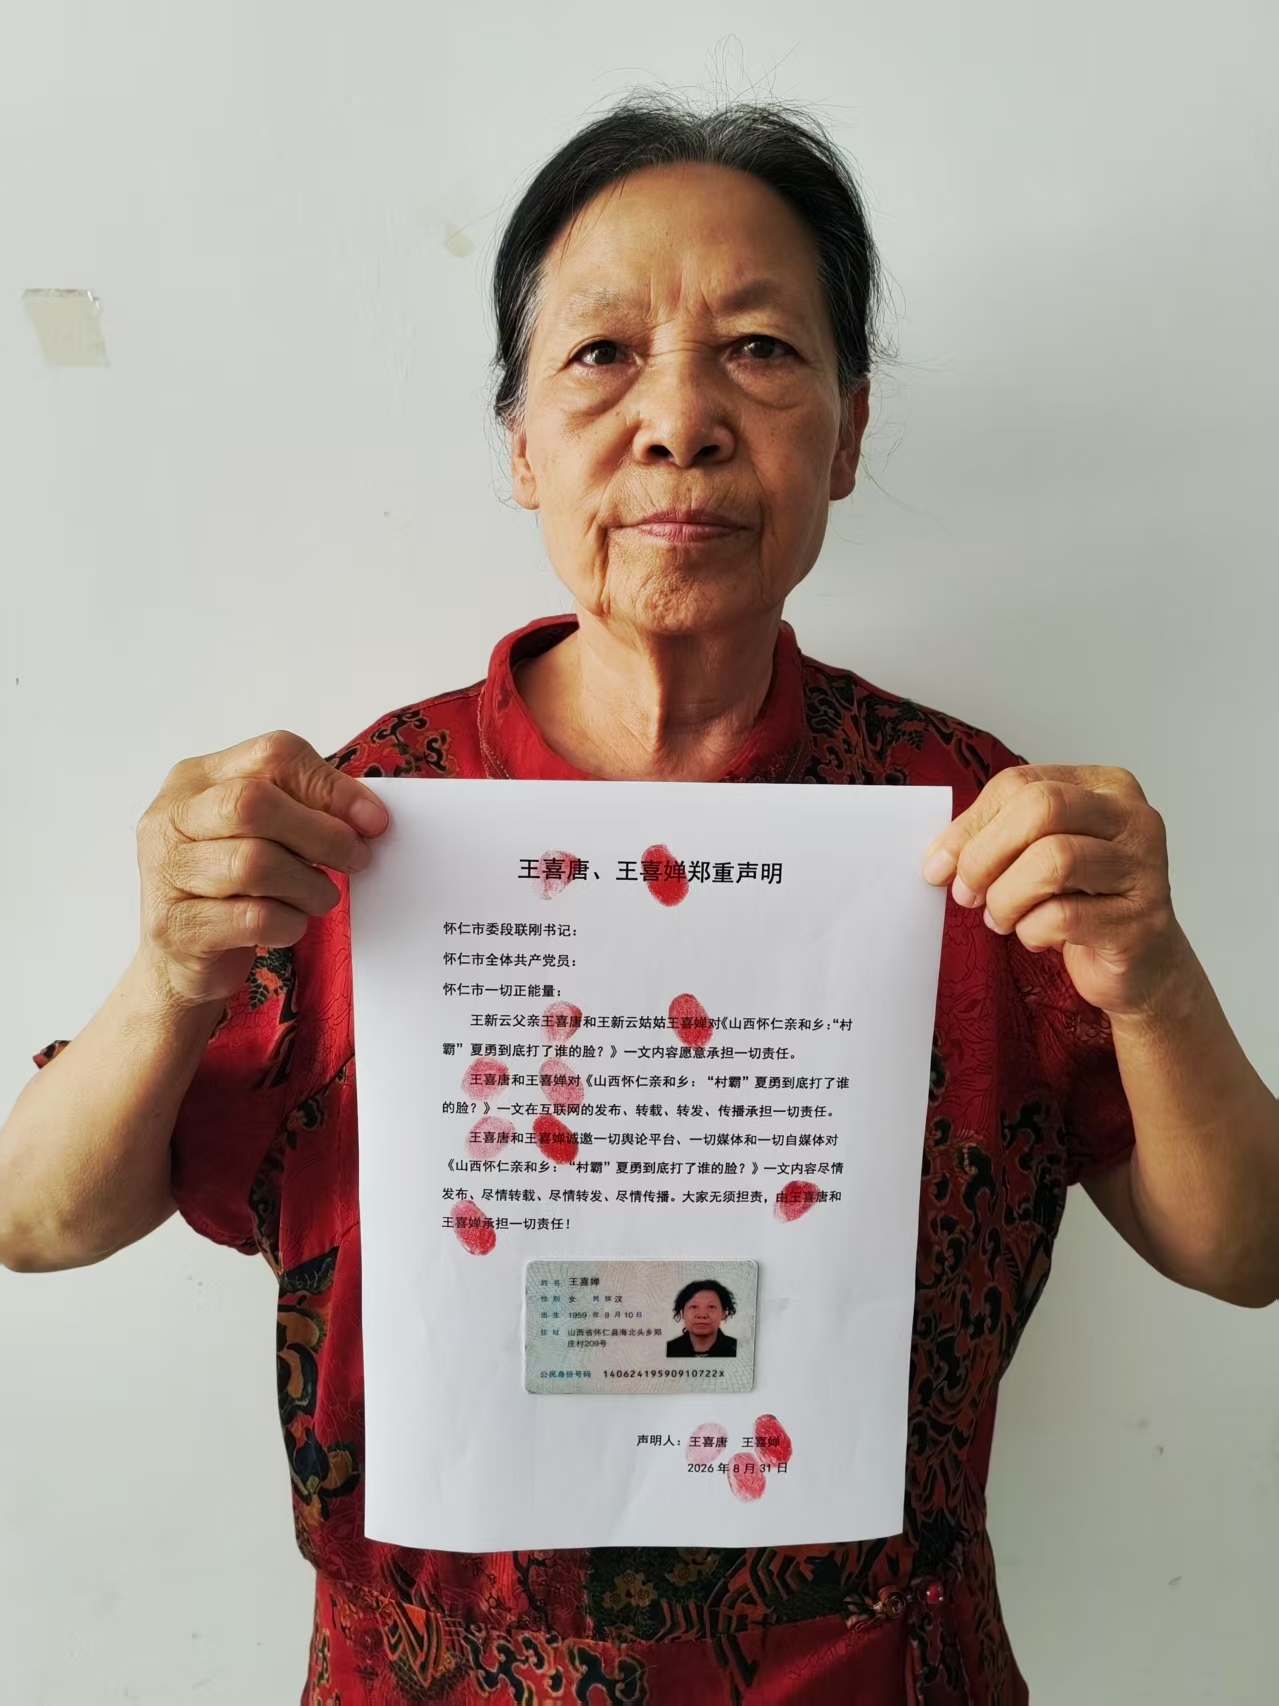 王喜唐、王喜婵郑重声明
怀仁市委段联刚书记：
怀仁市全体共产党员：
怀仁市一切正能量：
王新云父亲王喜唐和王新云姑姑王喜婵对《山西怀仁亲和乡：“村
霸”夏勇到底打了谁的脸？》一文内容愿意承担一切责任。
王喜唐和王喜婵对《山西怀仁亲和乡：“村霸”夏勇到底打了谁
的脸？》一文在互联网的发布、转载、转发、传播承担一切责任。
王喜唐和王喜婵诚邀一切舆论平台、一切媒体和一切自媒体对
《山西怀仁亲和乡：“村霸”夏勇到底打了谁的脸？》一文内容尽情
发布、尽情转载、尽情转发、尽情传播。大家无须担责，由王喜唐和
王喜婵承担一切责任！
姓名 王喜婵
性别 女 民族 汉
出生 1959 年 9 月 10 日
住址 山西省怀仁县海北头乡郑
庄村209号
公民身份号码 14062419590910722X
声明人：王喜唐 王喜婵
2026 年 8 月 31 日